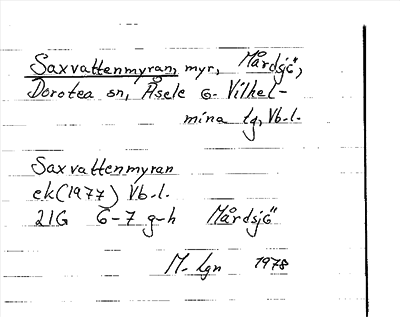 Saxvattenmyran, myr, Mårdsjö,
Dorotea sn, Åsele o. Vilhel-
mina lg, Vb.l.
Saxvattenmyran
ek (1977) Vb.l.
21G 6-7 g-h Mårdsjö
M. Lgn 1978